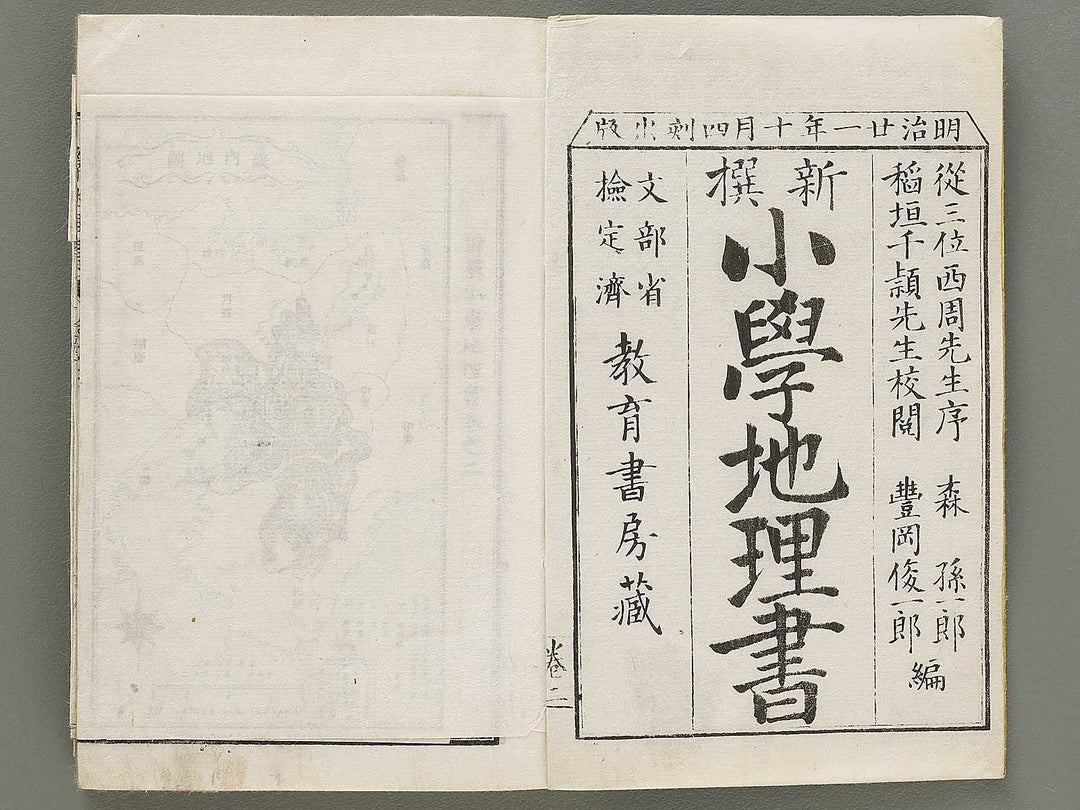 明治廿一年十月四刻出版
從三位西周先生序　森　孫一郎
稻垣千頴先生校閱　豐岡俊一郎　編
新撰
小學地理書
文部省
檢定濟
教育書房藏
卷二